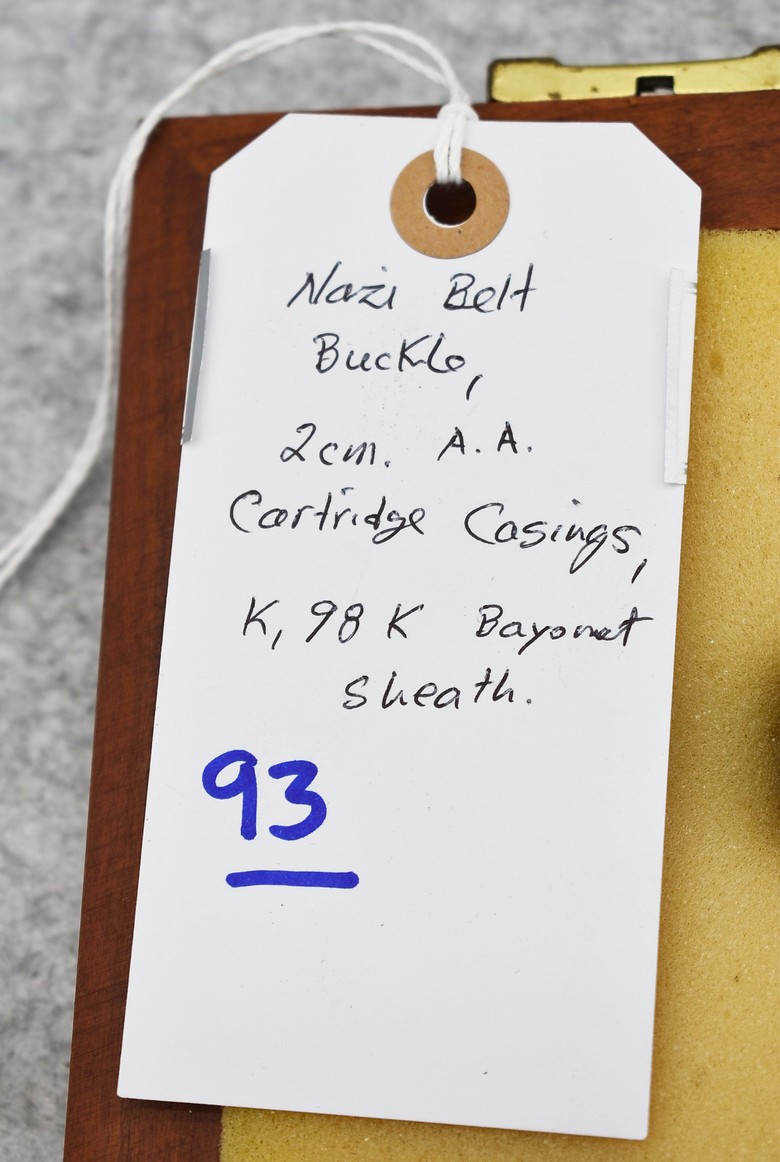 Nazi Belt
Buckle,
2cm. A.A.
Cartridge Casings,
K,98 K Bayonet
sheath.
93